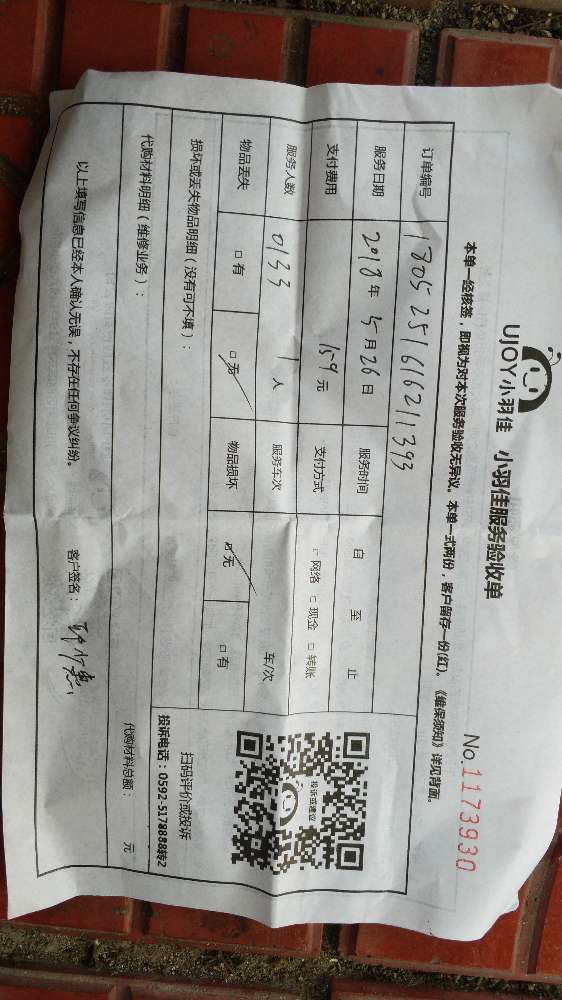 UJOY小羽佳 小羽佳服务验收单
No.1173930
本单一经核签，即视为对本次服务验收无异议。本单一式两份，客户留存一份(红)。《维保须知》详见背面。
订单编号 180525161621393
服务日期 2018年5月26日 服务时间 自 至 止
支付费用 159元 支付方式 □网络 □现金 □转账
服务人数 0133 1人 服务车次 车/次
物品丢失 □有 □无 物品损坏 □无 □有
损坏或丢失物品明细（没有可不填）：
代购材料明细（维修业务）：
投诉或建议
扫码评价或投诉
投诉电话：0592-5178888转2
代购材料总额： 元
以上填写信息已经本人确认无误，不存在任何争议纠纷。 客户签名：